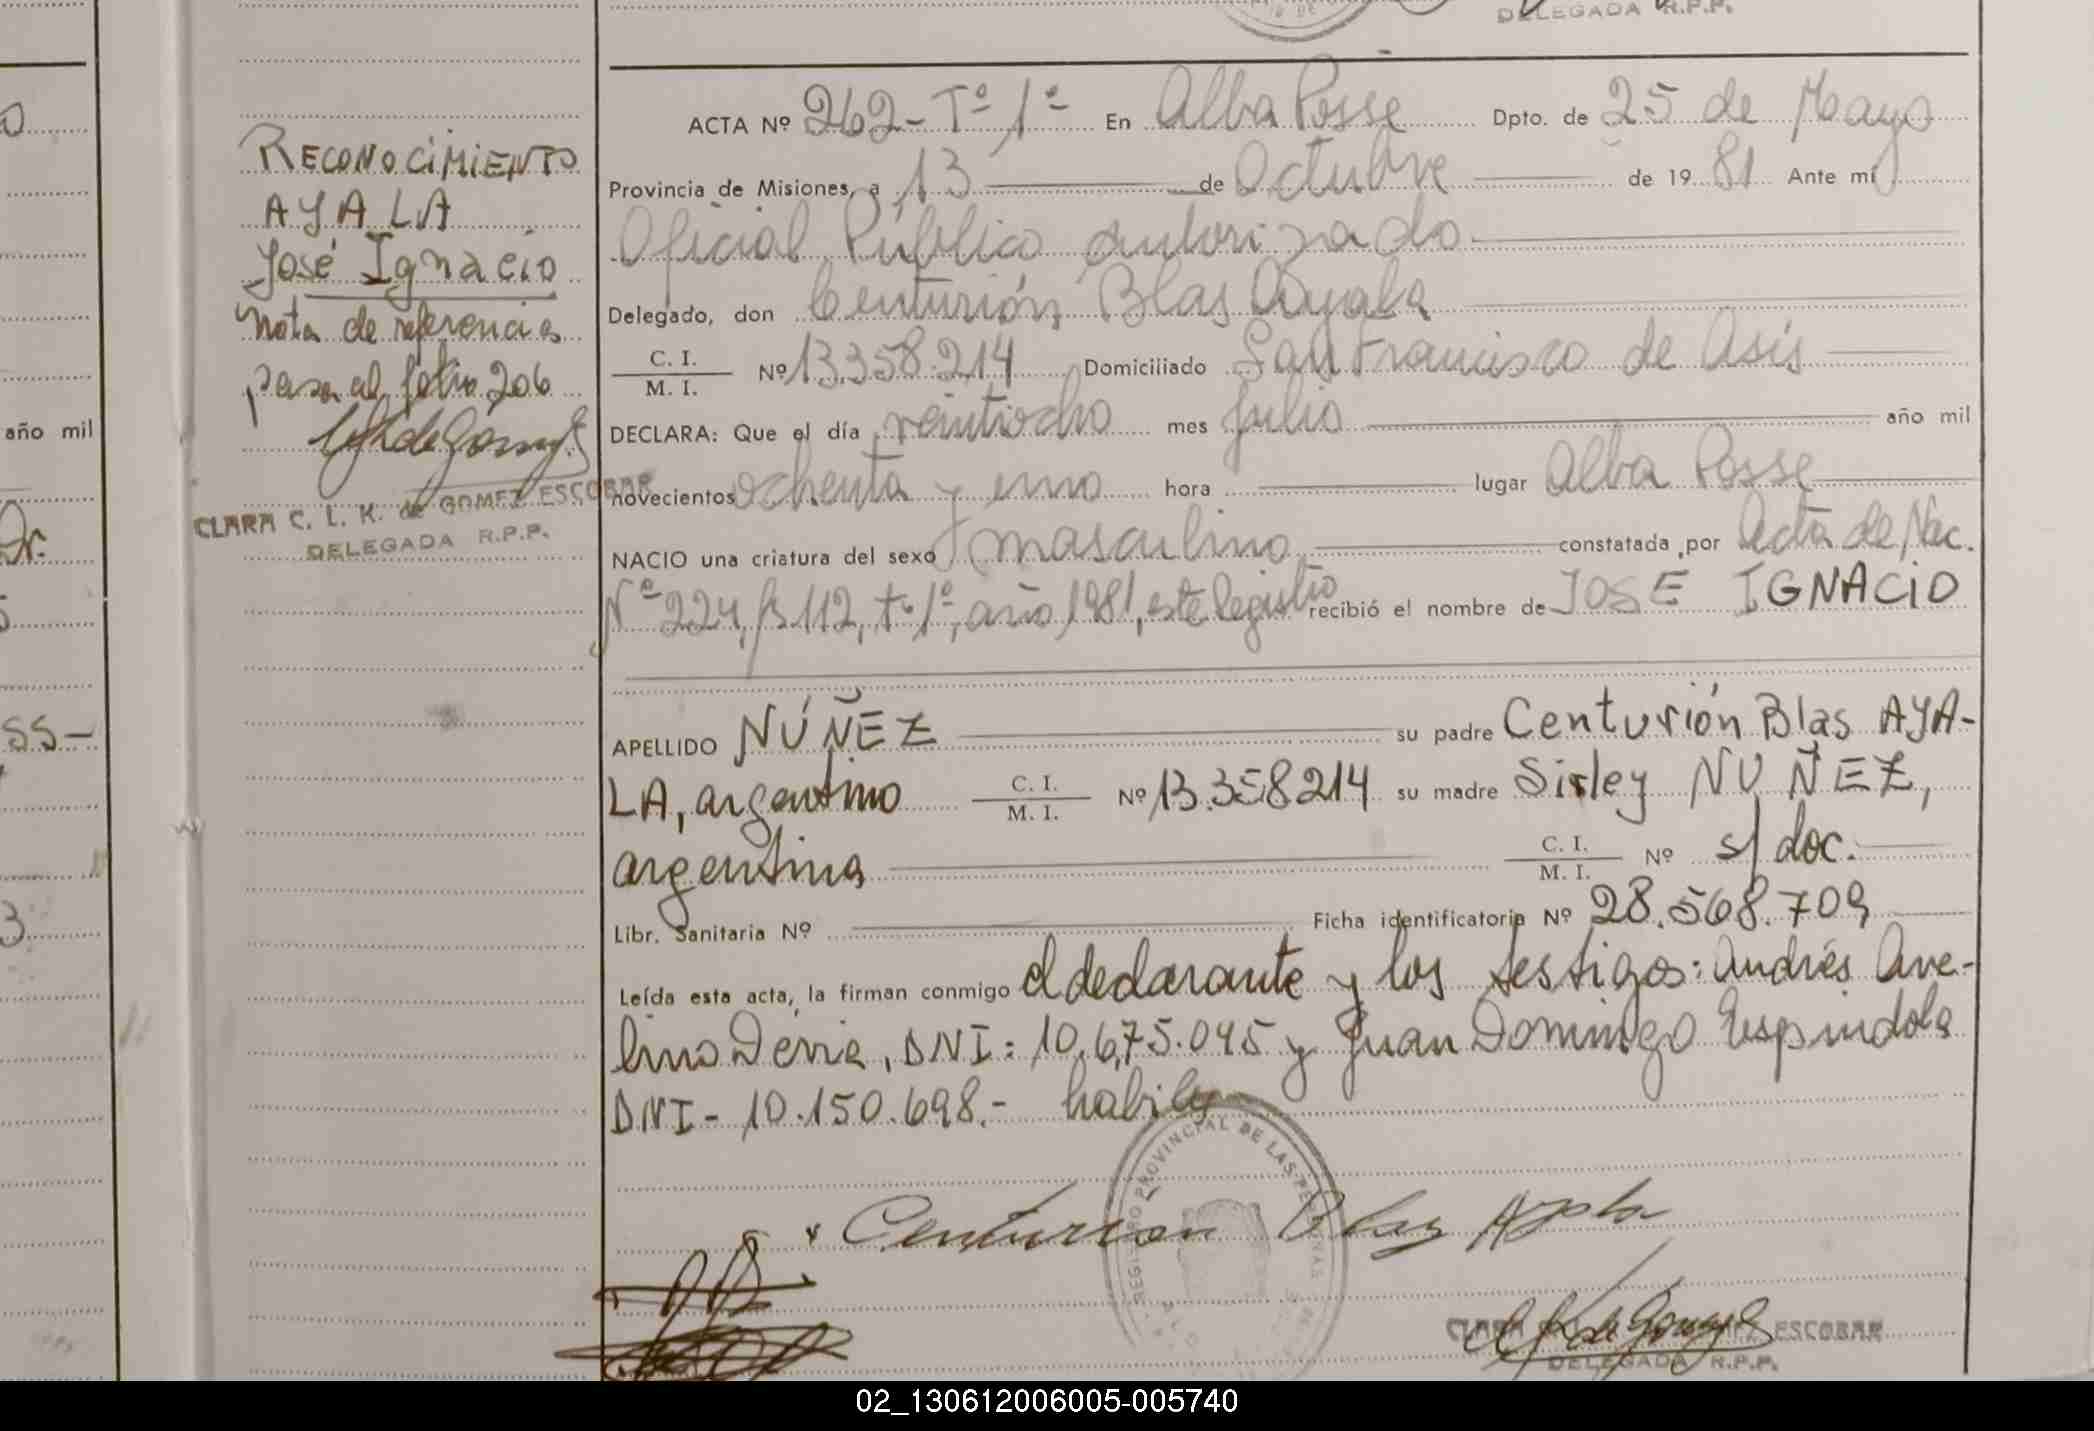 DELEGADA R.P.P.
ACTA Nº 262 - Tº 1º En Alba Posse Dpto. de 25 de Mayo
Provincia de Misiones, a 13 de Octubre de 1981 Ante mí
Oficial Público Autorizado
Delegado, don Centurión Blas Ayala
C. I.
M. I. Nº 13.358.214 Domiciliado San Francisco de Asís
DECLARA: Que el día veintiocho mes Julio año mil
novecientos ochenta y uno hora lugar Alba Posse
NACIO una criatura del sexo masculino constatada por Acta de Nac.
Nº 224, fs 112, tº 1º, año 1981, este Registro recibió el nombre de JOSE IGNACIO
APELLIDO NÚÑEZ su padre Centurión Blas AYA-
LA, argentino C. I.
M. I. Nº 13.358214 su madre Sisley NUÑEZ,
argentina C. I.
M. I. Nº s/ doc.
Libr. Sanitaria Nº Ficha identificatoria Nº 28.568.709
Leída esta acta, la firman conmigo el declarante y los testigos: Andrés Ave-
lino Devia, DNI: 10.675.045 y Juan Domingo Espindola
DNI - 10.150.698.- habiles
REGISTRO PROVINCIAL DE LAS PERSONAS
Centurión Blas Ayala
CLARA ESCOBAR
DELEGADA R.P.P.
RECONOCIMIENTO
AYALA
José Ignacio
Nota de referencia
pasa al folio 206
CLARA C. L. K. de GOMEZ ESCOBAR
DELEGADA R.P.P.
año mil
Dr.
SS-
3
02_130612006005-005740